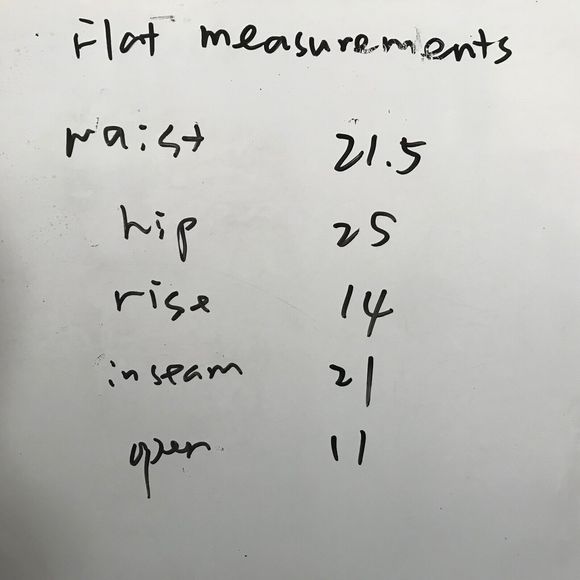 Flat measurements
waist 21.5
hip 25
rise 14
inseam 21
open 11